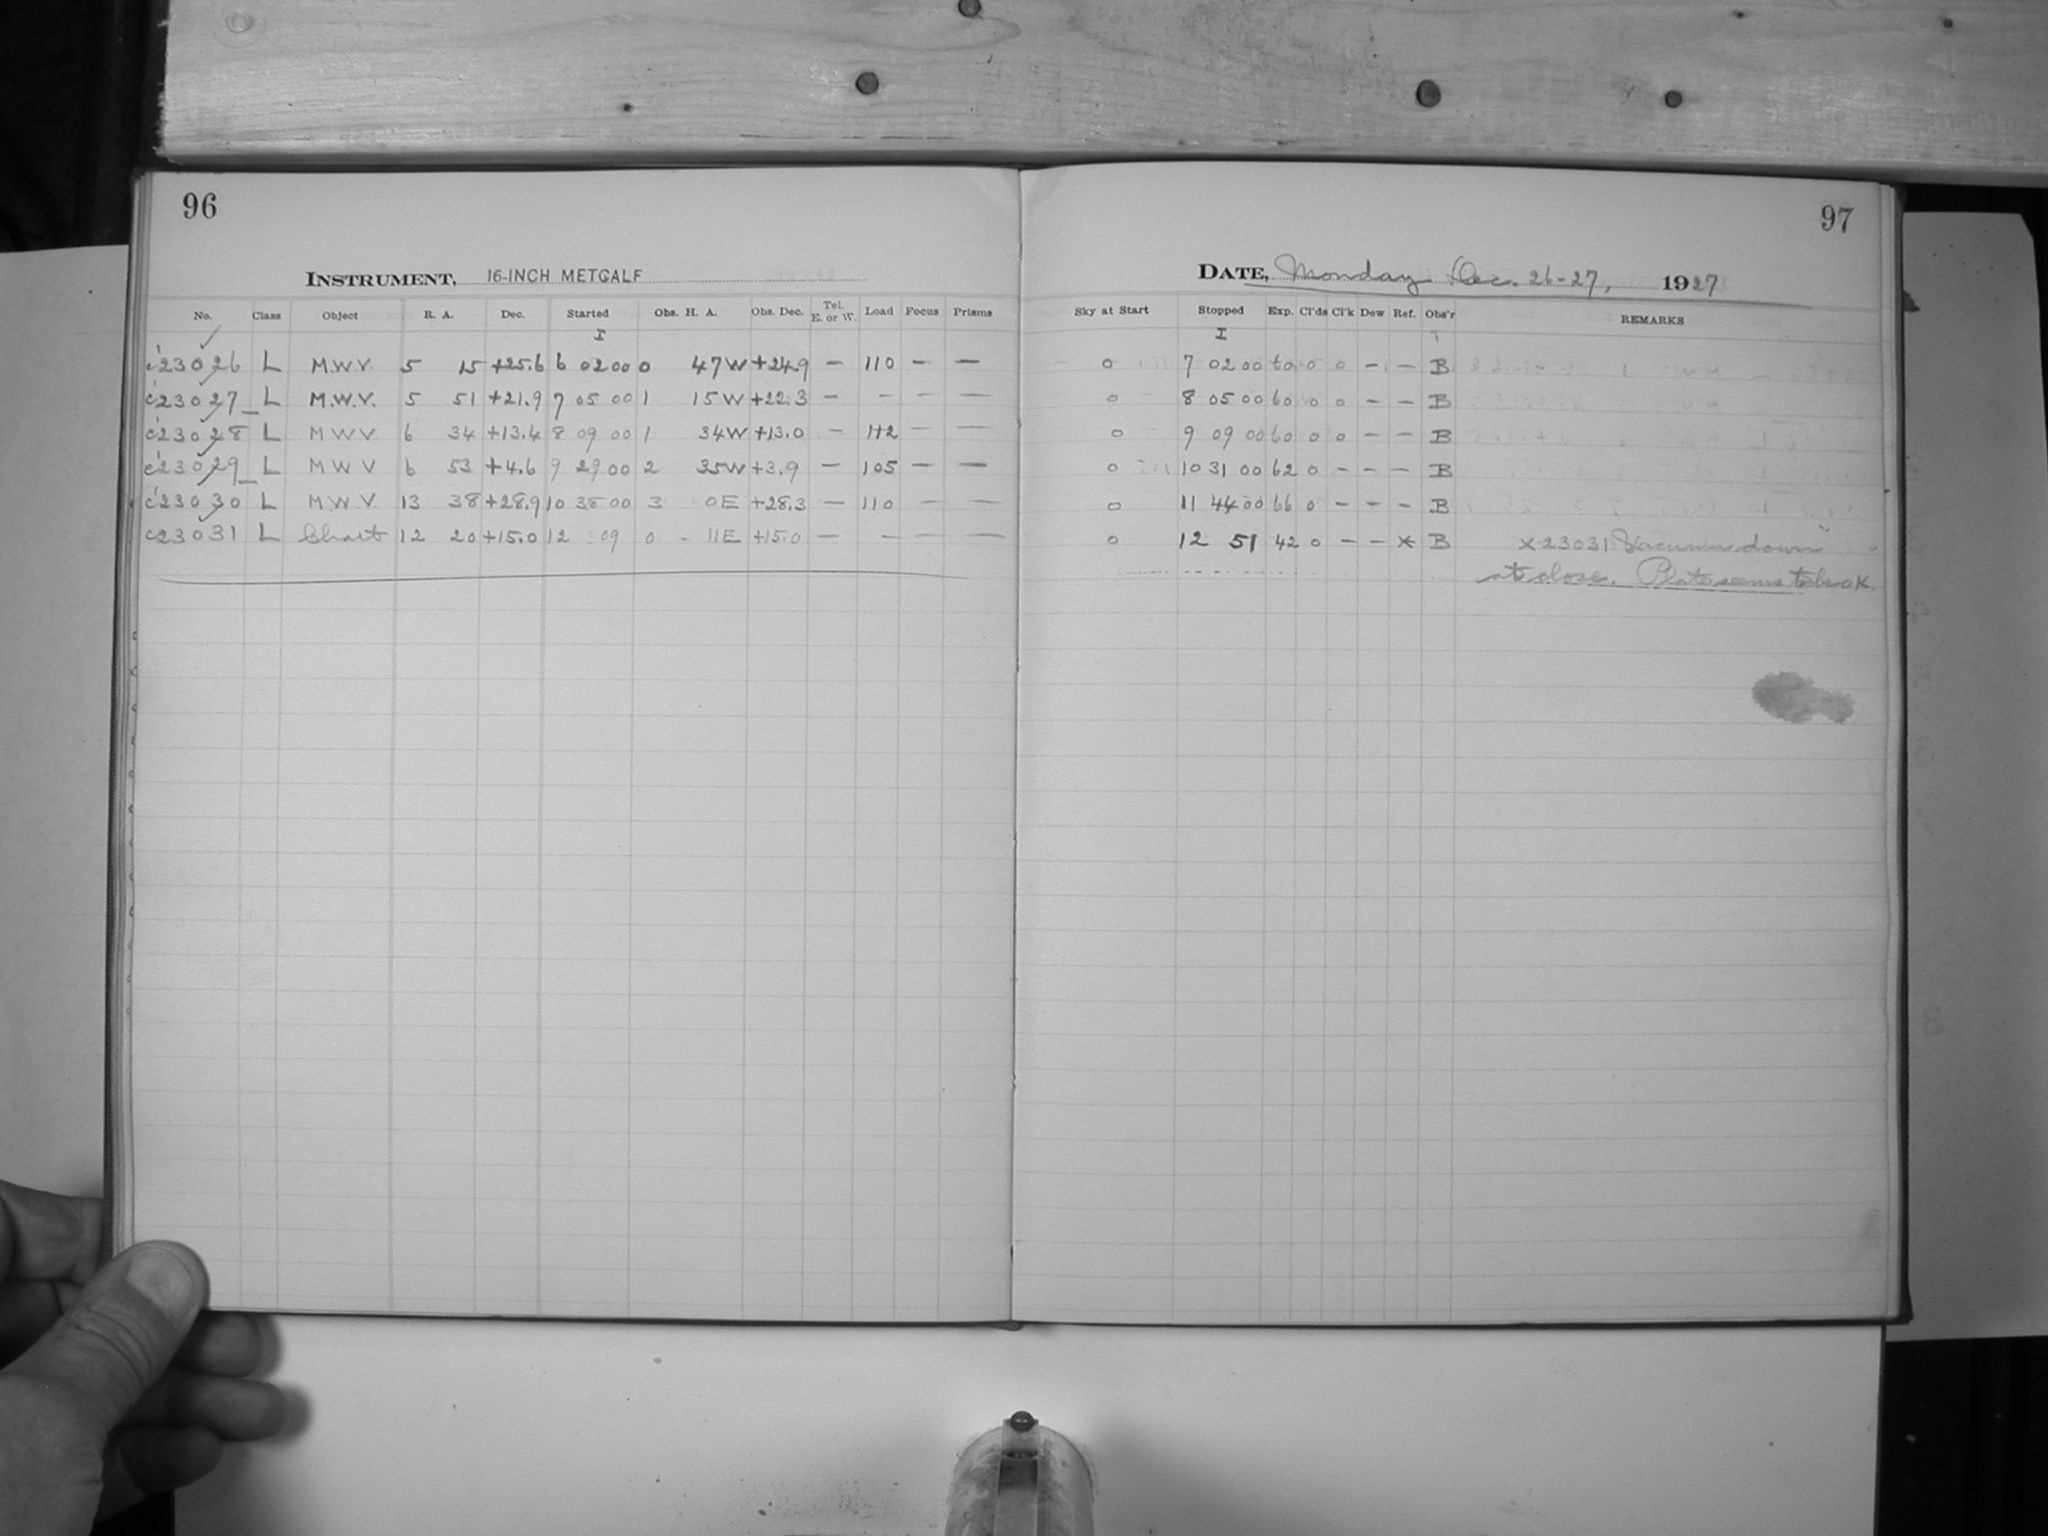 96
97
INSTRUMENT, 16-INCH METCALF
DATE, Monday Dec. 26-27, 1927
No. Class Object R. A. Dec. Started Obs. H. A. Obs. Dec. Tel. E. or W. Load Focus Prisms Sky at Start Stopped Exp. Cl'ds Cl'k Dew Ref. Obs'r REMARKS
I I
c'23026 L M.W.V. 5 15 +25.6 6 02 00 0 47W +24.9 — 110 — — 0 7 02 00 60 0 0 — — B
c'23027 L M.W.V. 5 51 +21.9 7 05 00 1 15W +22.3 — - — — 0 8 05 00 60 0 0 — — B
c'23028 L M W V 6 34 +13.4 8 09 00 1 34W +13.0 — 112 — — 0 9 09 00 60 0 0 — — B
c'23029 L M W V 6 53 +4.6 9 29 00 2 35W +3.9 — 105 — — 0 10 31 00 62 0 — — — B
c'23030 L M.W.V. 13 38 +28.9 10 38 00 3 0E +28.3 — 110 — — 0 11 44 00 66 0 — — — B
c23031 L Chart 12 20 +15.0 12 09 0 11E +15.0 — - — — 0 12 51 42 0 — — x B x 23031 Vacuum down
at close. Plate seems to be OK.